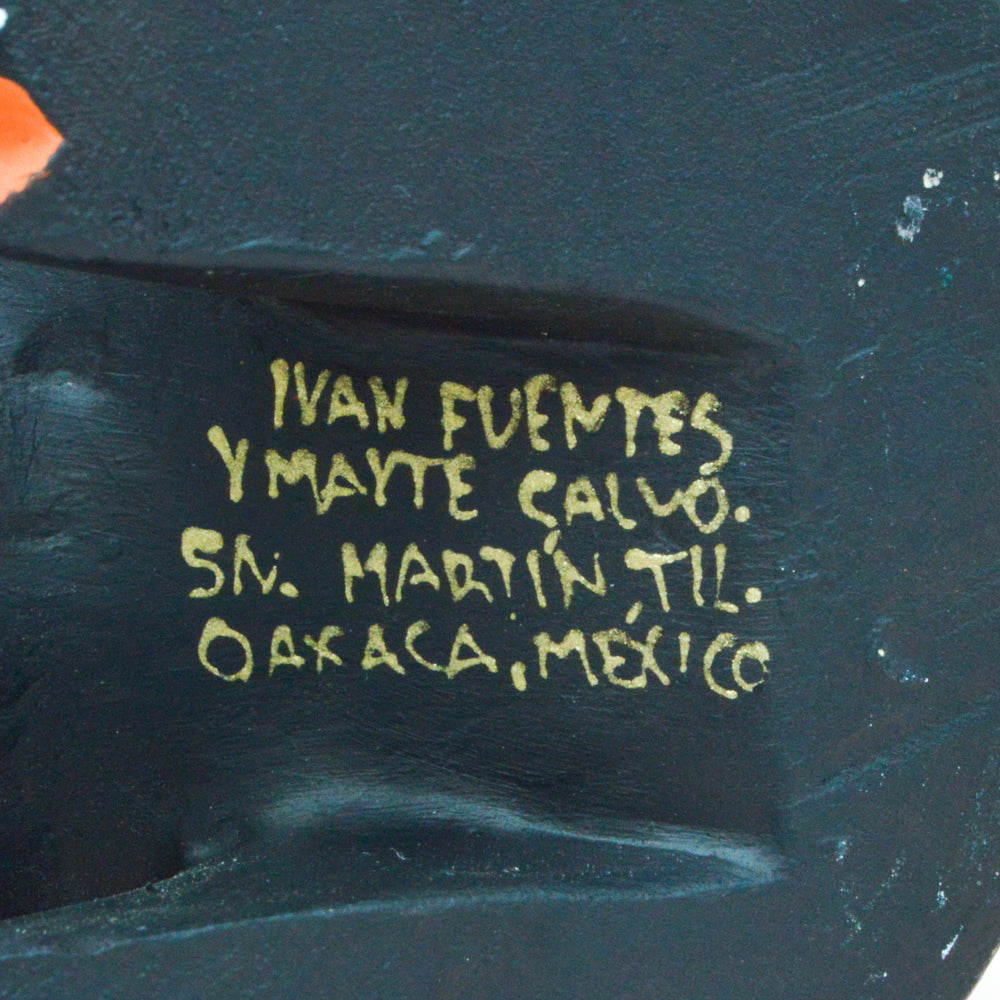 IVAN FUENTES
Y MAYTE CALVO.
SN. MARTÍN TIL.
OAXACA, MÉXICO